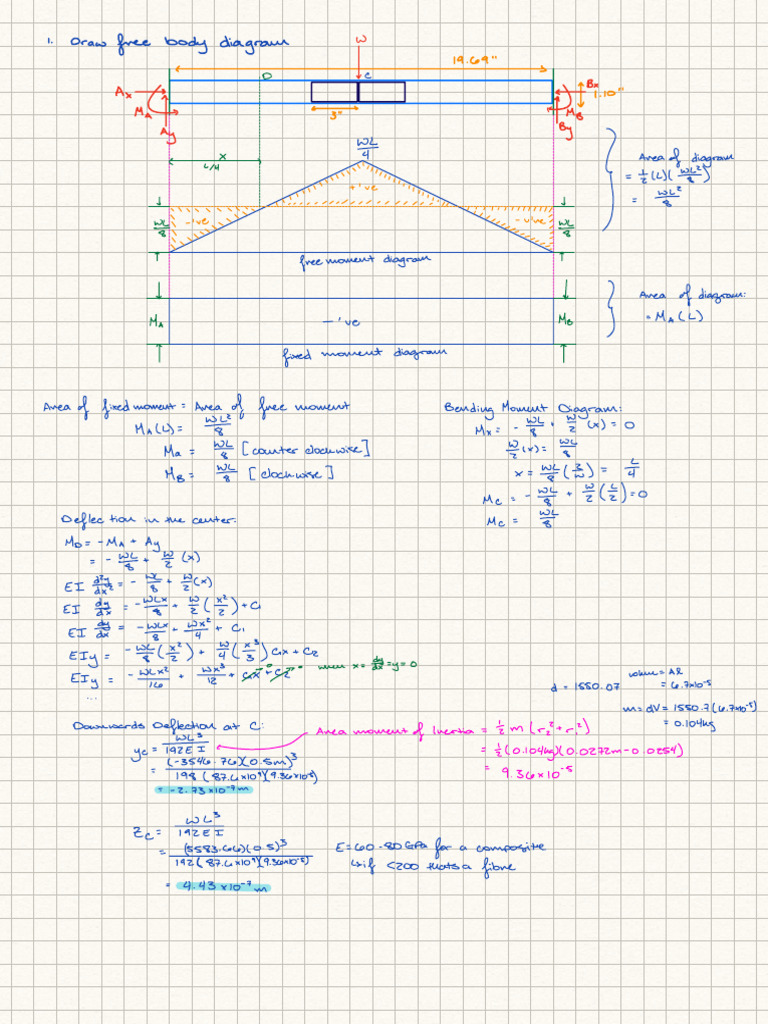 1. Draw free body diagram
W
19.69"
D
C
Ax
MA
Ay
Bx
1.10"
MB
By
3"
x
L/4
WL/4
+'ve
-'ve
-'ve
WL/8
WL/8
free moment diagram
Area of diagram
= 1/2 (L)(WL²/8)
= WL²/8
MA
-'ve
MB
fixed moment diagram
Area of diagram:
= MA(L)
Area of fixed moment = Area of free moment
MA(L) = WL²/8
Ma = WL/8 [counter clockwise]
MB = WL/8 [clockwise]
Bending Moment Diagram:
Mx = - WL/8 + W/2 (x) = 0
W/2 (x) = WL/8
x = WL/8 (2/W) = L/4
Mc = - WL/8 + W/2 (L/2) = 0
Mc = WL/8
Deflection in the center:
MD = -MA + Ay
= - WL/8 + W/2 (x)
EI d²y/dx² = - WL/8 + W/2 (x)
EI dy/dx = - WLx/8 + W/2 (x²/2) + C1
EI dy/dx = - WLx/8 + Wx²/4 + C1
EIy = - WL/8 (x²/2) + W/4 (x³/3) C1x + C2
EIy = - WLx²/16 + Wx³/12 + C1x + C2 when x = dy/dx = y = 0
...
d = 1550.07
volume = AL
= 6.7x10⁻⁵
m = dV = 1550.7(6.7x10⁻⁵)
= 0.104kg
Downwards Deflection at C:
yc = WL³/192EI
= (-3546.76)(0.5m)³/198(87.6x10⁹)(9.36x10⁻⁵)
= -2.73x10⁻⁷m
Area moment of Inertia = 1/2 m (r2² + r1²)
= 1/2 (0.104kg)(0.0272m-0.0254)
= 9.36x10⁻⁵
Zc = WL³/192EI
= (5583.66)(0.5)³/192(87.6x10⁹)(9.36x10⁻⁵)
= 4.43x10⁻⁷m
E = 60-80GPa for a composite
↳ if <200 thats a fibre